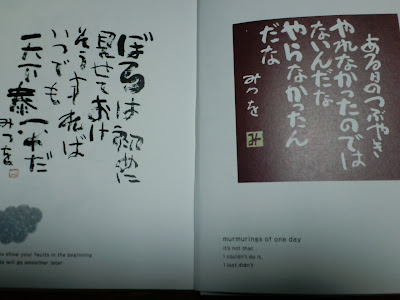 ぼろは初めに
見せておけ
そうすれば
いつでも
天下泰平だ
みつを
show your faults in the beginning
will go smoother later
ある日のつぶやき
やれなかったのでは
ないんだな
やらなかったん
だな
みつを
み
murmurings of one day
it's not that
I couldn't do it,
I just didn't